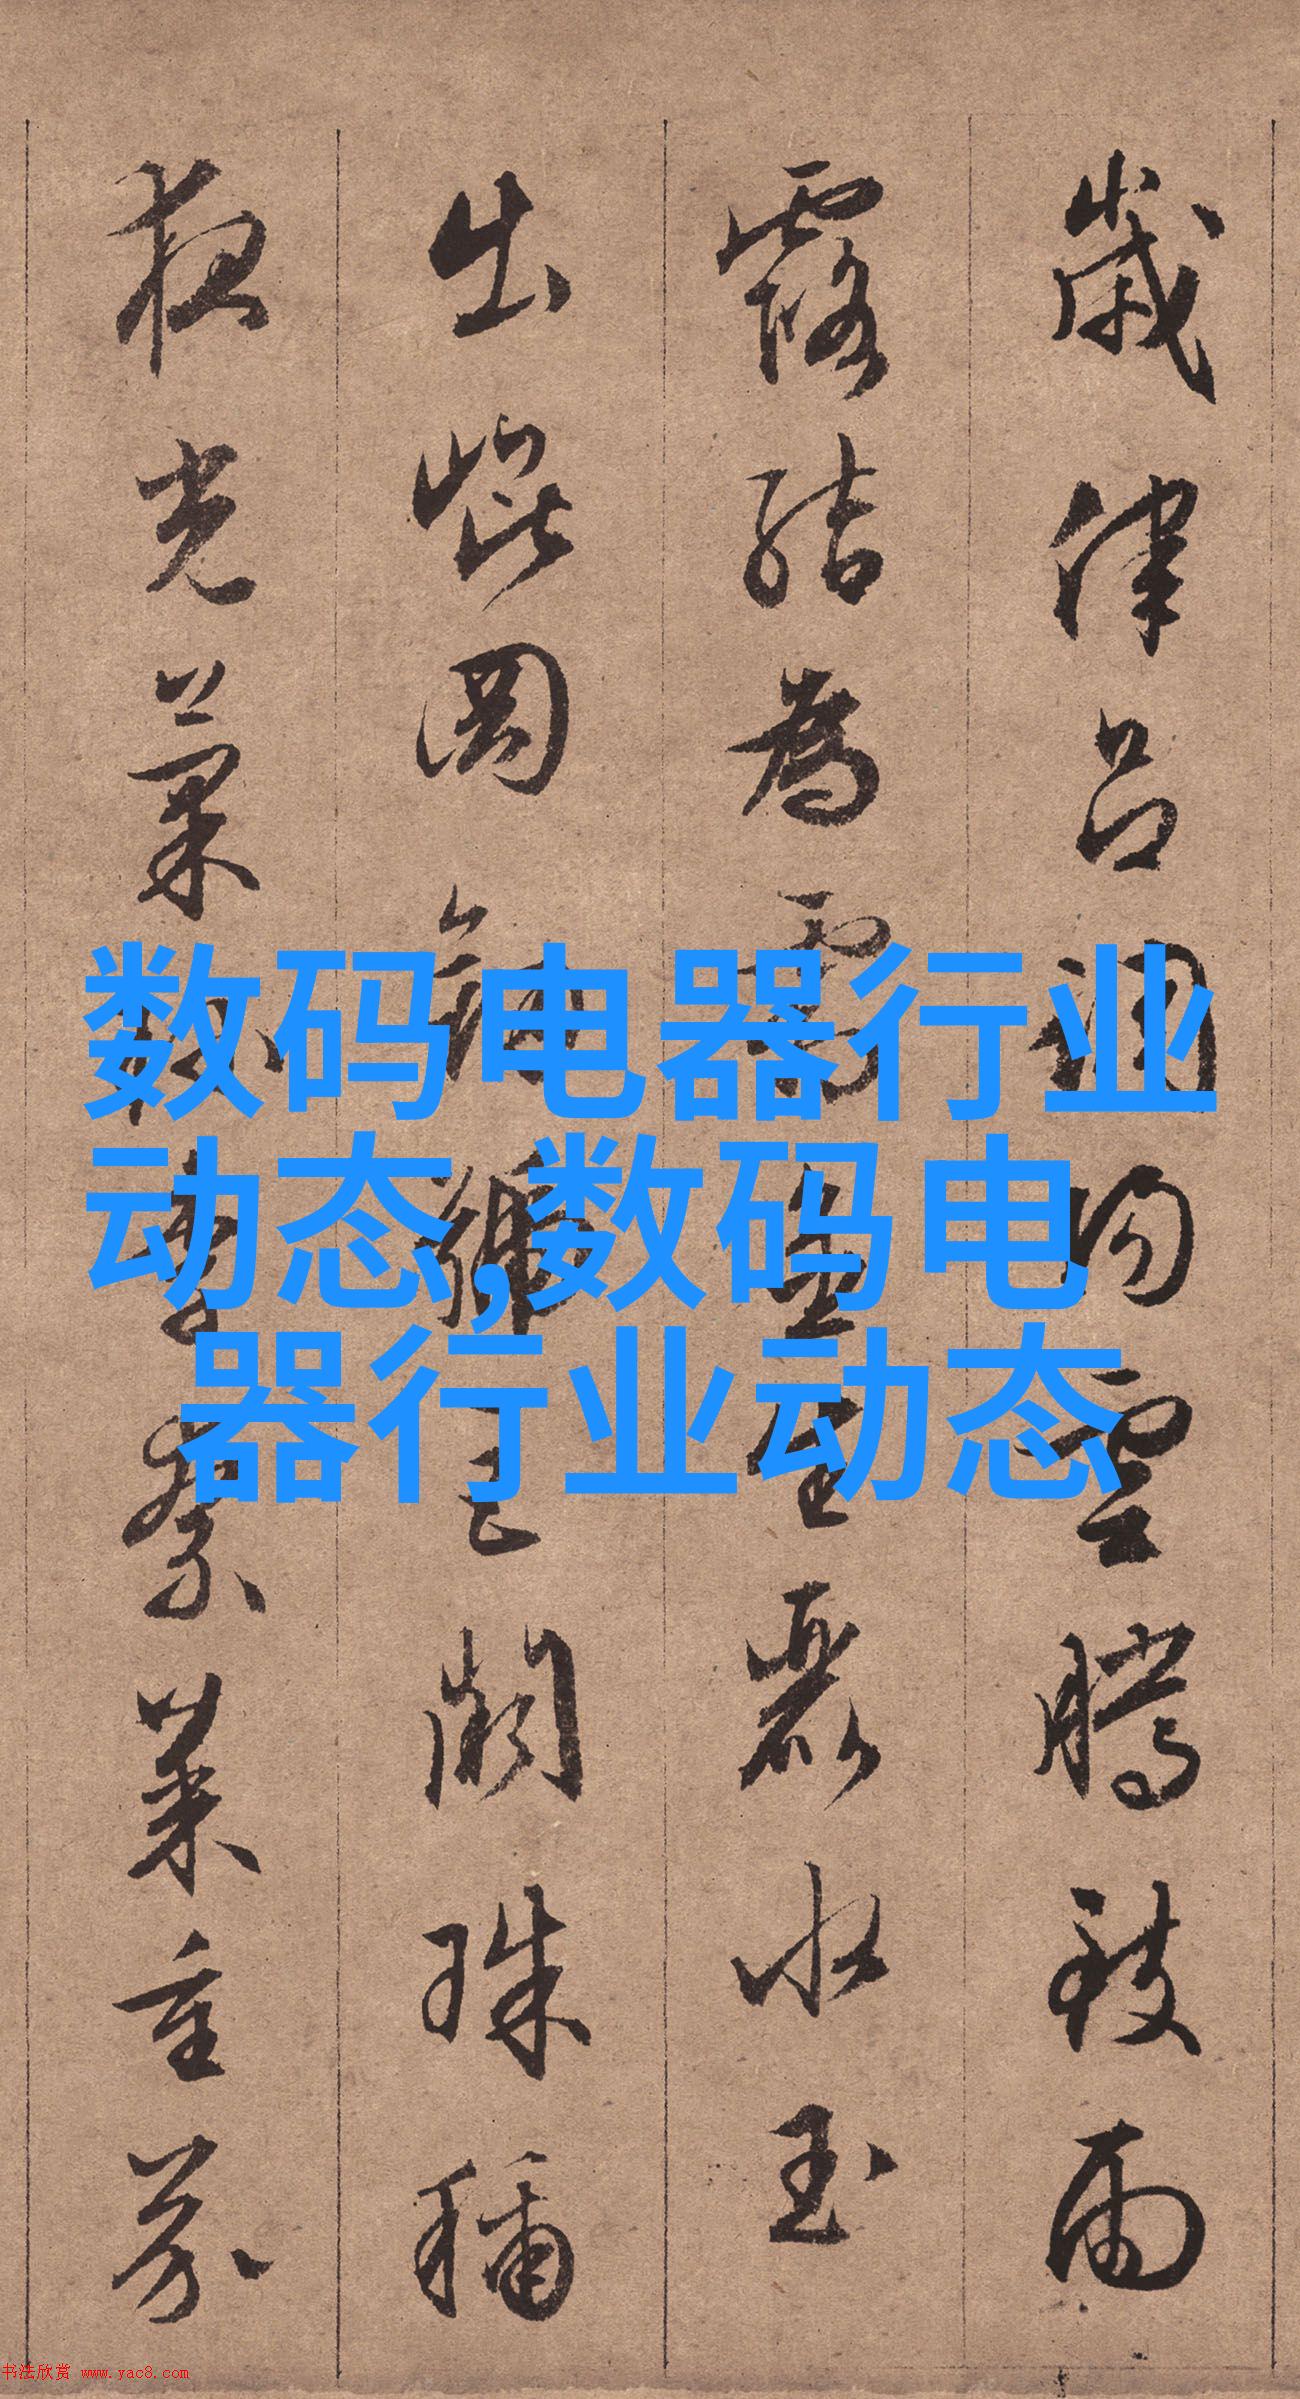 歲律呂調陽雲騰致雨
露結為霜金生麗水玉
出崐岡劍號巨闕珠稱
夜光菓珍李柰菜重芥
数码电器行业
动态,数码电
器行业动态
书法欣赏 www.yac8.com